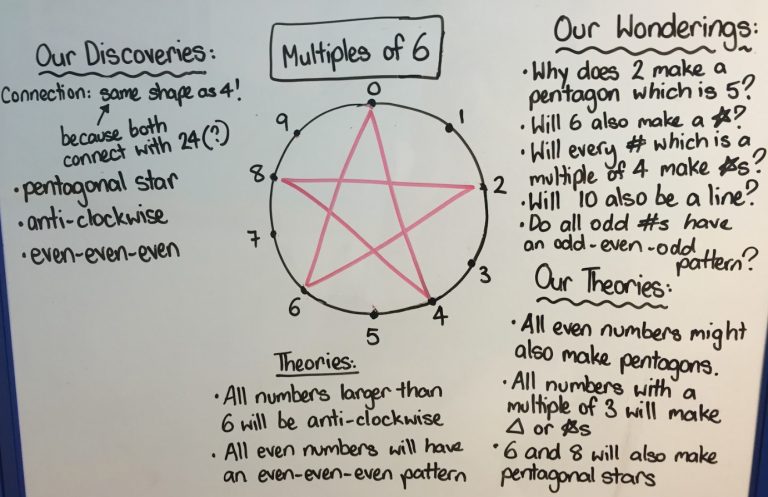 Our Discoveries:
Connection: same shape as 4!
because both
connect with 24(?)
•pentagonal star
•anti-clockwise
•even-even-even
Multiples of 6
0
1
2
3
4
5
6
7
8
9
Theories:
•All numbers larger than
6 will be anti-clockwise
•All even numbers will have
an even-even-even pattern
Our Wonderings:
•Why does 2 make a
pentagon which is 5?
•Will 6 also make a ☆?
•Will every # which is a
multiple of 4 make ☆s?
•Will 10 also be a line?
•Do all odd #s have
an odd-even-odd
pattern?
Our Theories:
•All even numbers might
also make pentagons.
•All numbers with a
multiple of 3 will make
△ or ☆s
•6 and 8 will also make
pentagonal stars